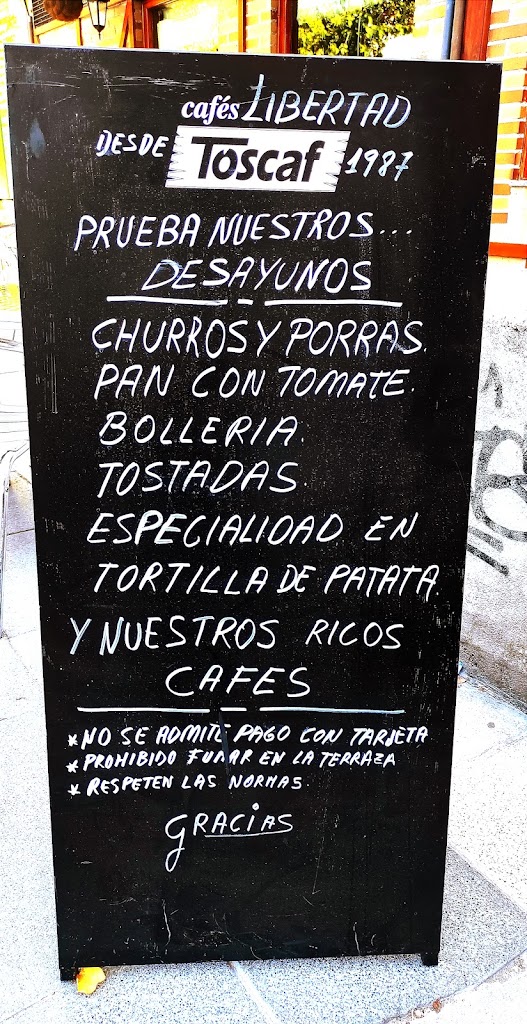 cafés LIBERTAD
DESDE Toscaf 1987
PRUEBA NUESTROS...
DESAYUNOS
CHURROS Y PORRAS.
PAN CON TOMATE.
BOLLERIA.
TOSTADAS
ESPECIALIDAD EN
TORTILLA DE PATATA.
Y NUESTROS RICOS
CAFES
* NO SE ADMITE PAGO CON TARJETA
* PROHIBIDO FUMAR EN LA TERRAZA
* RESPETEN LAS NORMAS.
GRACIAS